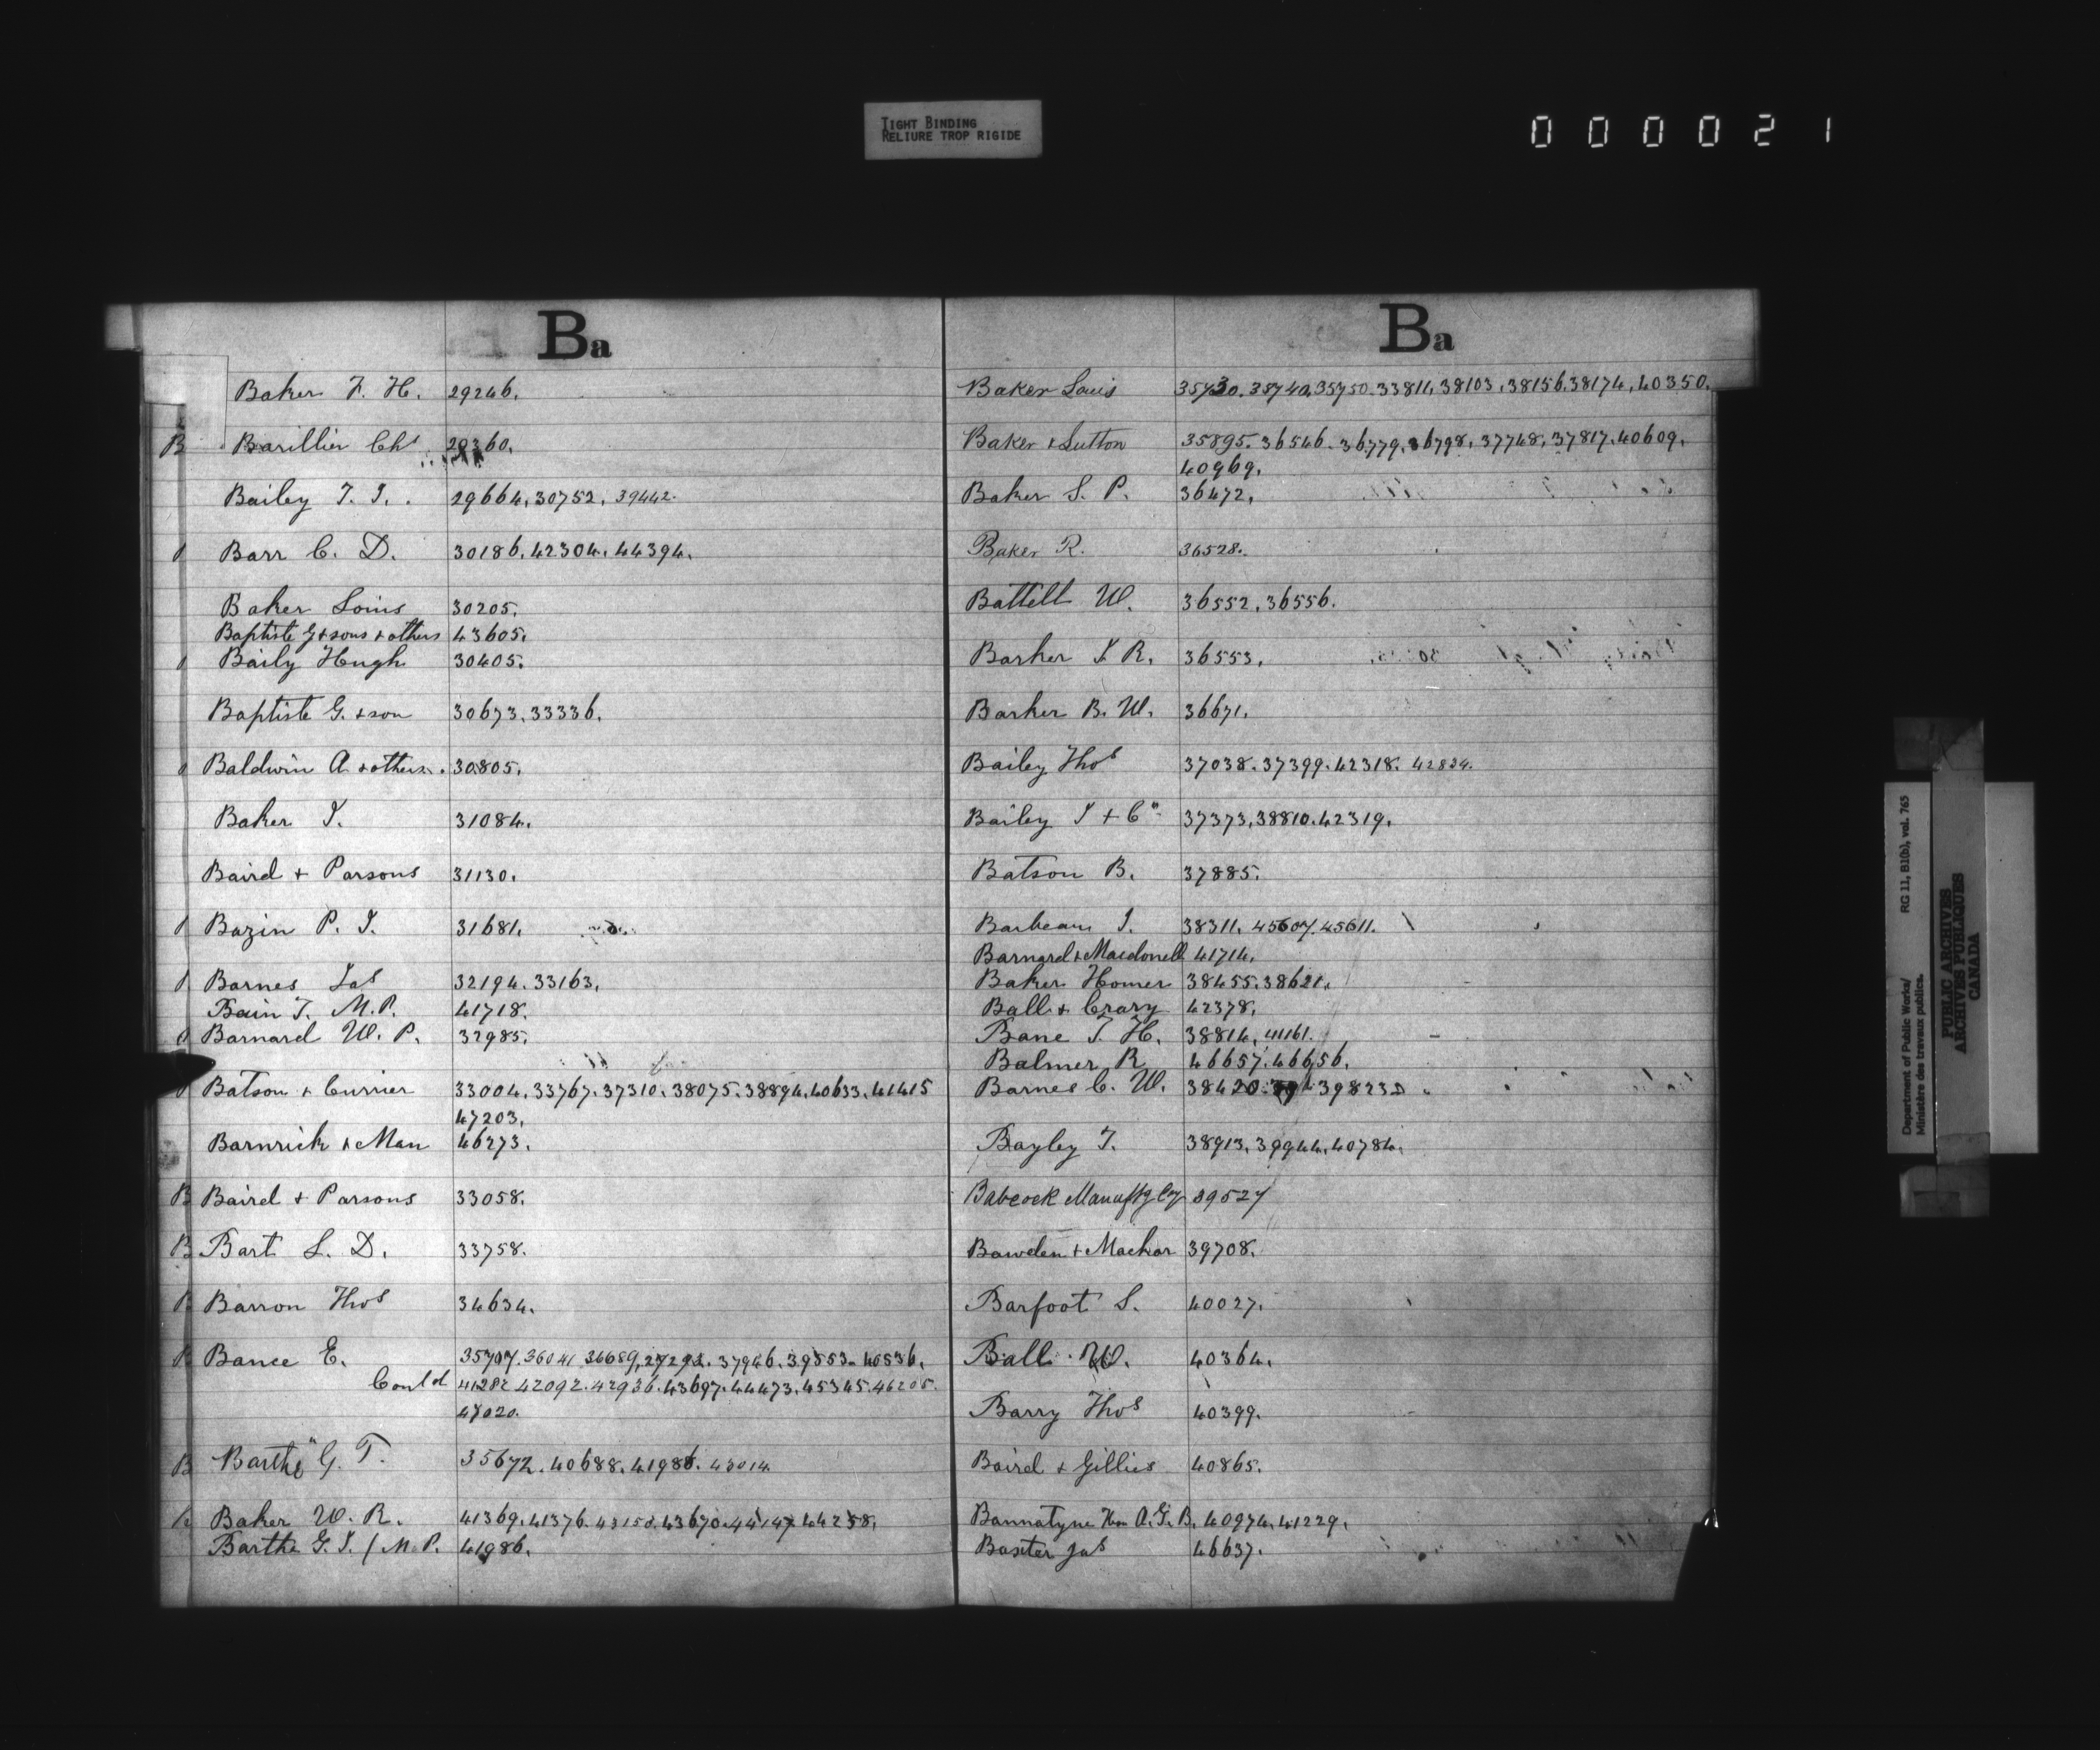 TIGHT BINDING
RELIURE TROP RIGIDE
000021
Ba
Baker F. H. 29246.
Barillier Chs 29360.
Bailey T. J. 29664, 30752, 39442.
Barr C. D. 30186. 42304. 44394.
Baker Louis 30205.
Baptiste G + sons + others 43605.
Baily Hugh 30405.
Baptiste G. + son 30673. 33336.
Baldwin A + others. 30805.
Baker J. 31084.
Baird + Parsons 31130.
Bazin P. J. 31681.
Barnes Jas 32194. 33163.
Bain T. M.P. 41718.
Barnard W. P. 32985.
Batson + Currier 33004. 33767. 37310. 38075. 38894. 40633. 41415
47203.
Barnrick + Man 46273.
B Baird + Parsons 33058.
B Bart L. D. 33758.
B Barron Thos 34634.
B Bance E. 35707. 36041 36689, 37946. 39553. 40536.
Contd 41282 42092. 42936. 43697. 44473. 45345. 46205.
47020.
B Barthe G. T. 35672. 40688. 41986. 43014
Baker W. R. 41369. 41376. 43670. 44147. 44258.
Barthe G. J. / M.P. 41986.
Ba
Baker Louis 35730. 35740. 35750. 33811. 38103. 38156. 38174. 40350.
Baker + Sutton 35895. 36546. 36779. 36798. 37748. 37817. 40609.
40969.
Baker S. P. 36472.
Baker R. 36528.
Battell W. 36552. 36556.
Barker J. R. 36553.
Barker B. W. 36671.
Bailey Thos 37038. 37399. 42318. 42824.
Bailey J + Co 37373. 38810. 42319.
Batson B. 37885.
Barbeau J. 38311. 45607. 45611.
Barnard + Macdonell 41714.
Baker Homer 38455. 38621.
Ball + Crary 42378.
Bane T. H. 38814, 41161.
Balmer R 46657. 46656.
Barnes C. W. 38420. 39823
Bayley T. 38913. 39944. 40784.
Babcock Manuftg Coy 39527
Bawden + Machar 39708.
Barfoot S. 40027.
Ball W. 40364.
Barry Thos 40399.
Baird + Gillies 40865.
Bannatyne Hon A.G.B. 40974. 41229.
Baxter Jas 46637.
Department of Public Works/ RG 11, B1(b), vol. 765
Ministère des travaux publics.
PUBLIC ARCHIVES
ARCHIVES PUBLIQUES
CANADA